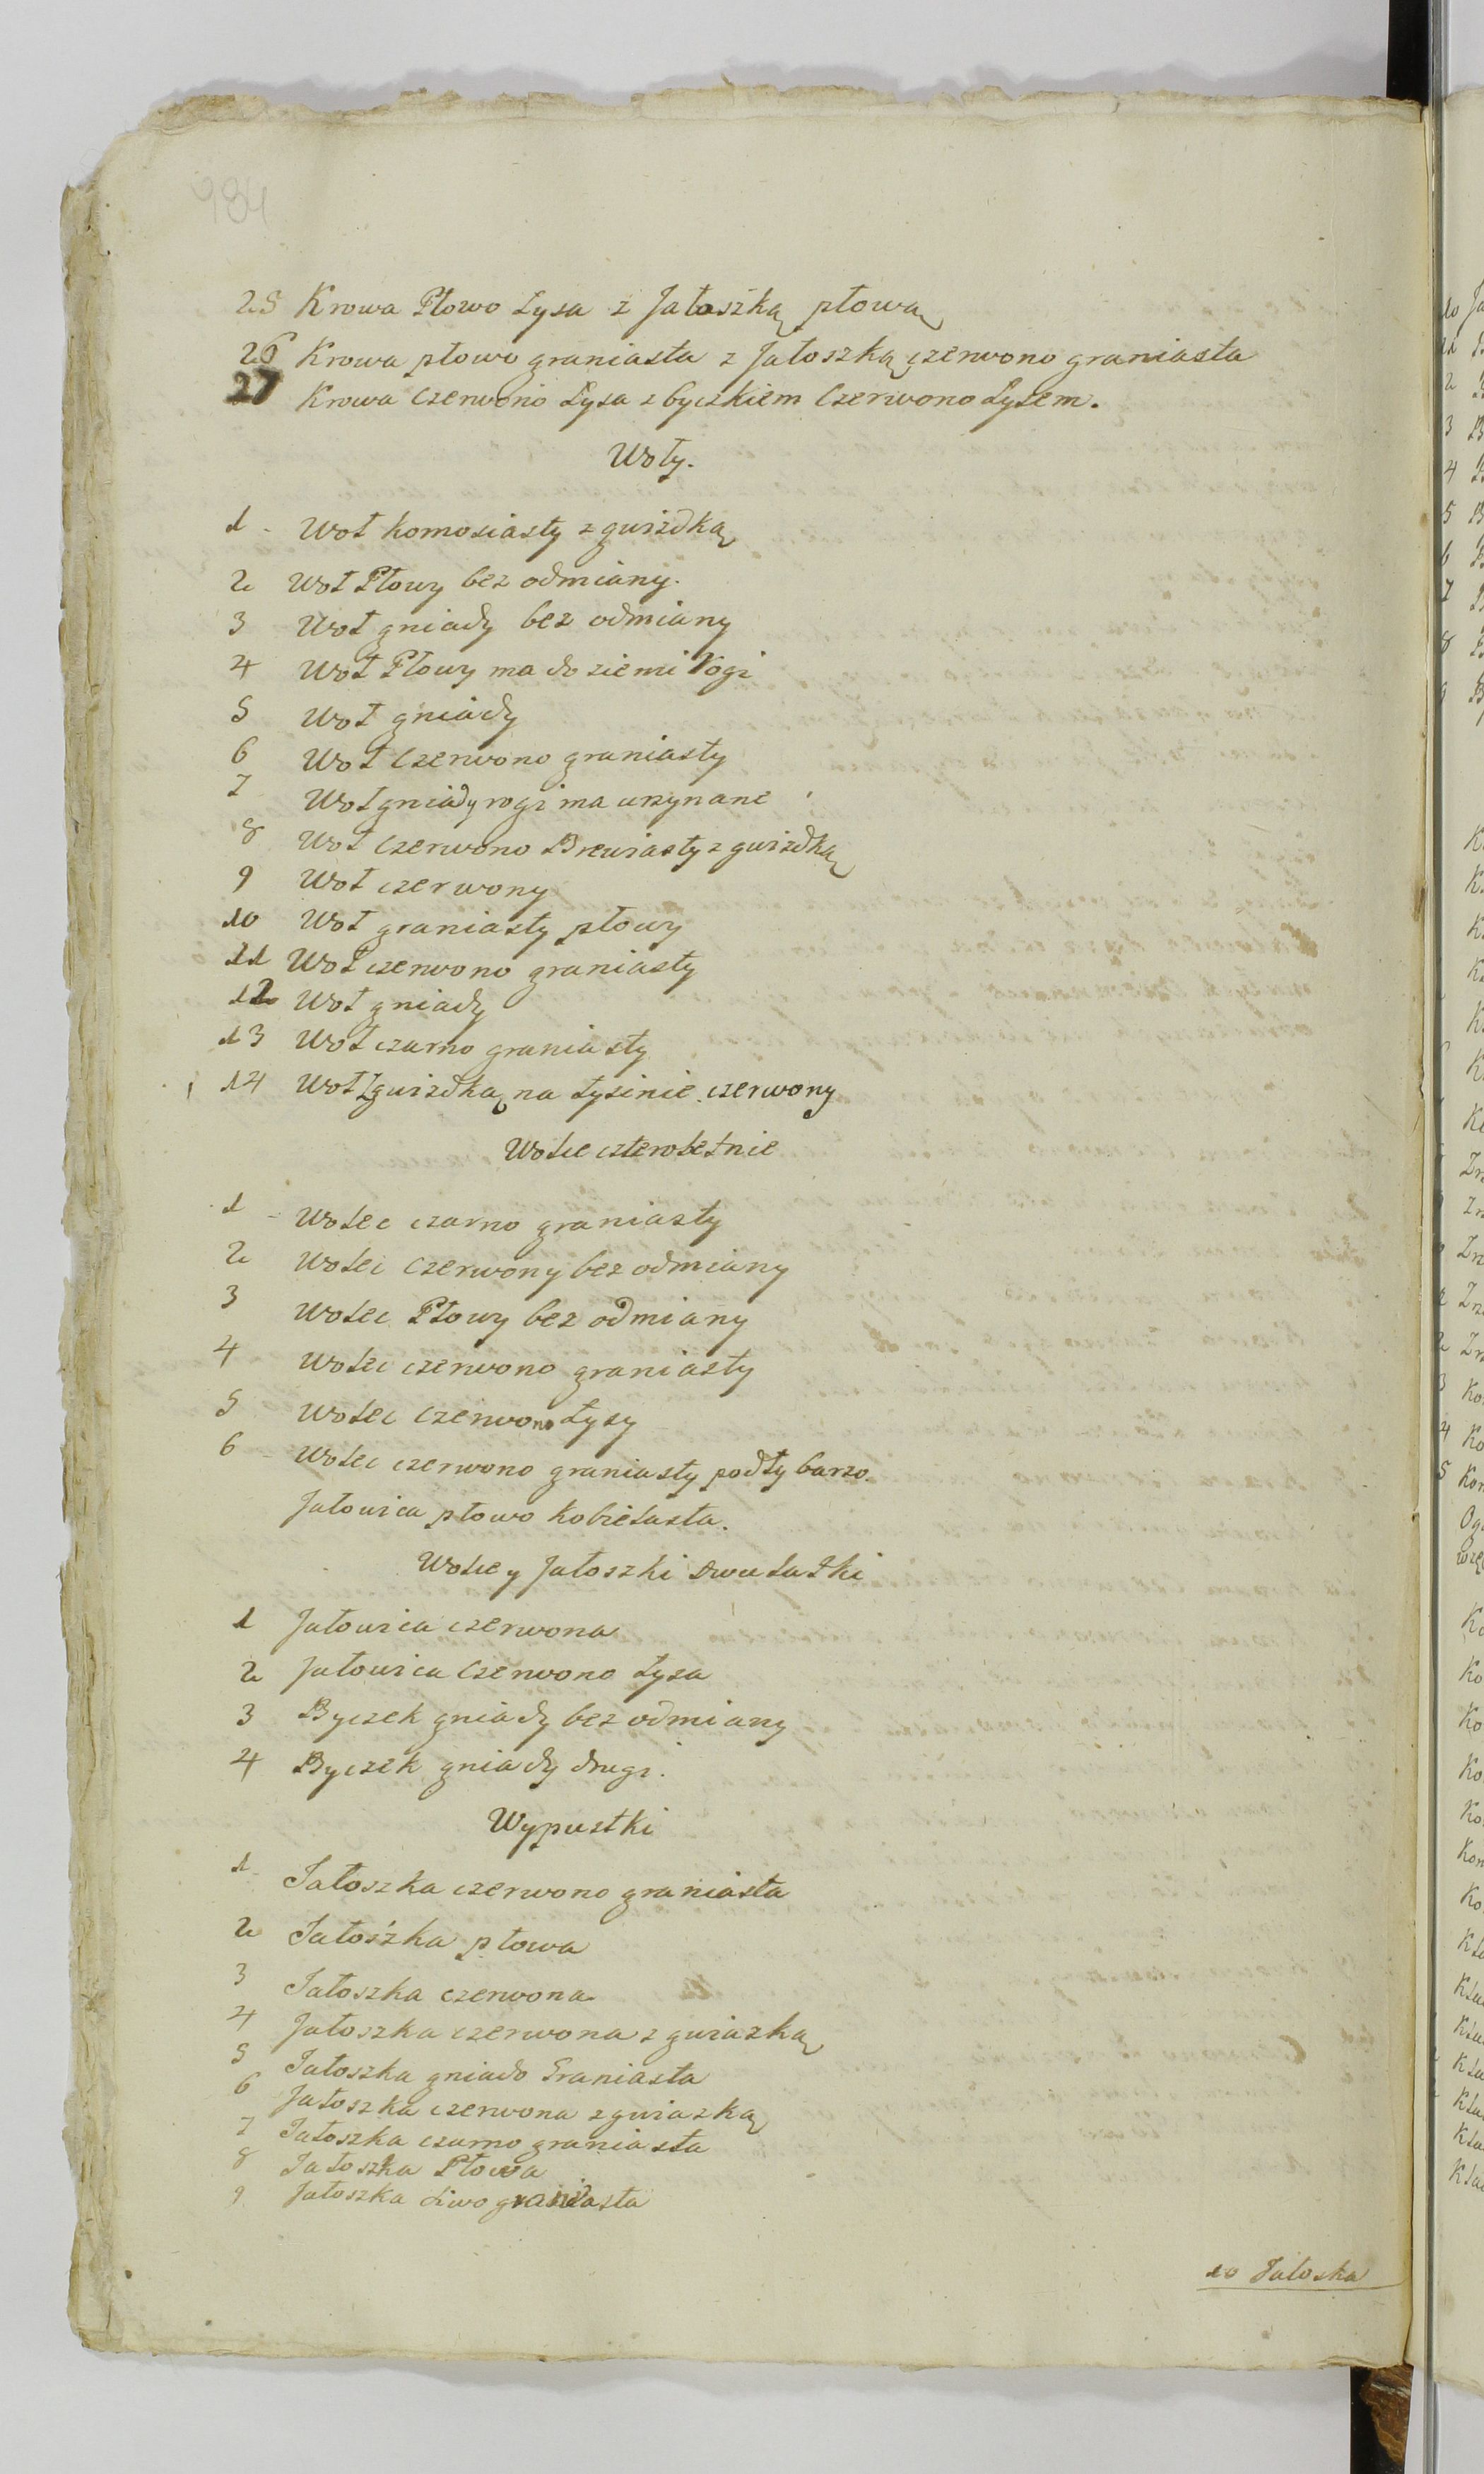 984
25 Krowa Płowo Łysa z Jałoszką płową
26 Krowa płowo graniasta z Jałoszką czerwono graniasta
27 Krowa Czerwono Łysa z byczkiem Czerwono Łysem.
Woły.
1 - Woł komosiasty z gwizdką
2 Woł Płowy bez odmiany.
3 Woł gniady bez odmiany
4 Woł Płowy ma do ziemi rogi
5 Woł gniady
6 Woł Czerwono graniasty
7 Woł gniady rogi ma urzynane
8 Woł Czerwono Brewiasty z gwizdką
9 Woł czerwony
10 Woł graniasty płowy
11 Woł czerwono graniasty
12 Woł gniady
13 Woł czarno graniasty
14 Woł Zgwizdką na Łysinie czerwony
Wolce czteroletnie
1 - Wolec czarno graniasty
2 Wolec Czerwony bez odmiany
3 Wolec Płowy bez odmiany
4 Wolec czerwono graniasty
5 Wolec Czerwono Łysy
6 - Wolec czerwono graniasty podły barzo.
Jałowica płowo kobielasta.
Wolce y Jałoszki dwulatki
1 Jałowica czerwona
2 Jałowica Czerwono Łysa
3 Byczek gniady bez odmiany
4 Byczek gniady drugi.
Wypustki
1 - Jałoszka czerwono graniasta
2 Jałoszka płowa
3 Jałoszka czerwona
4 Jałoszka czerwona z gwiazką
5 Jałoszka gniado Graniasta
6 Jałoszka czerwona z gwiazką
7 Jałoszka czarno graniasta
8 Jałoszka Płowa
9 Jałoszka siwo graniasta
10 Jałoska